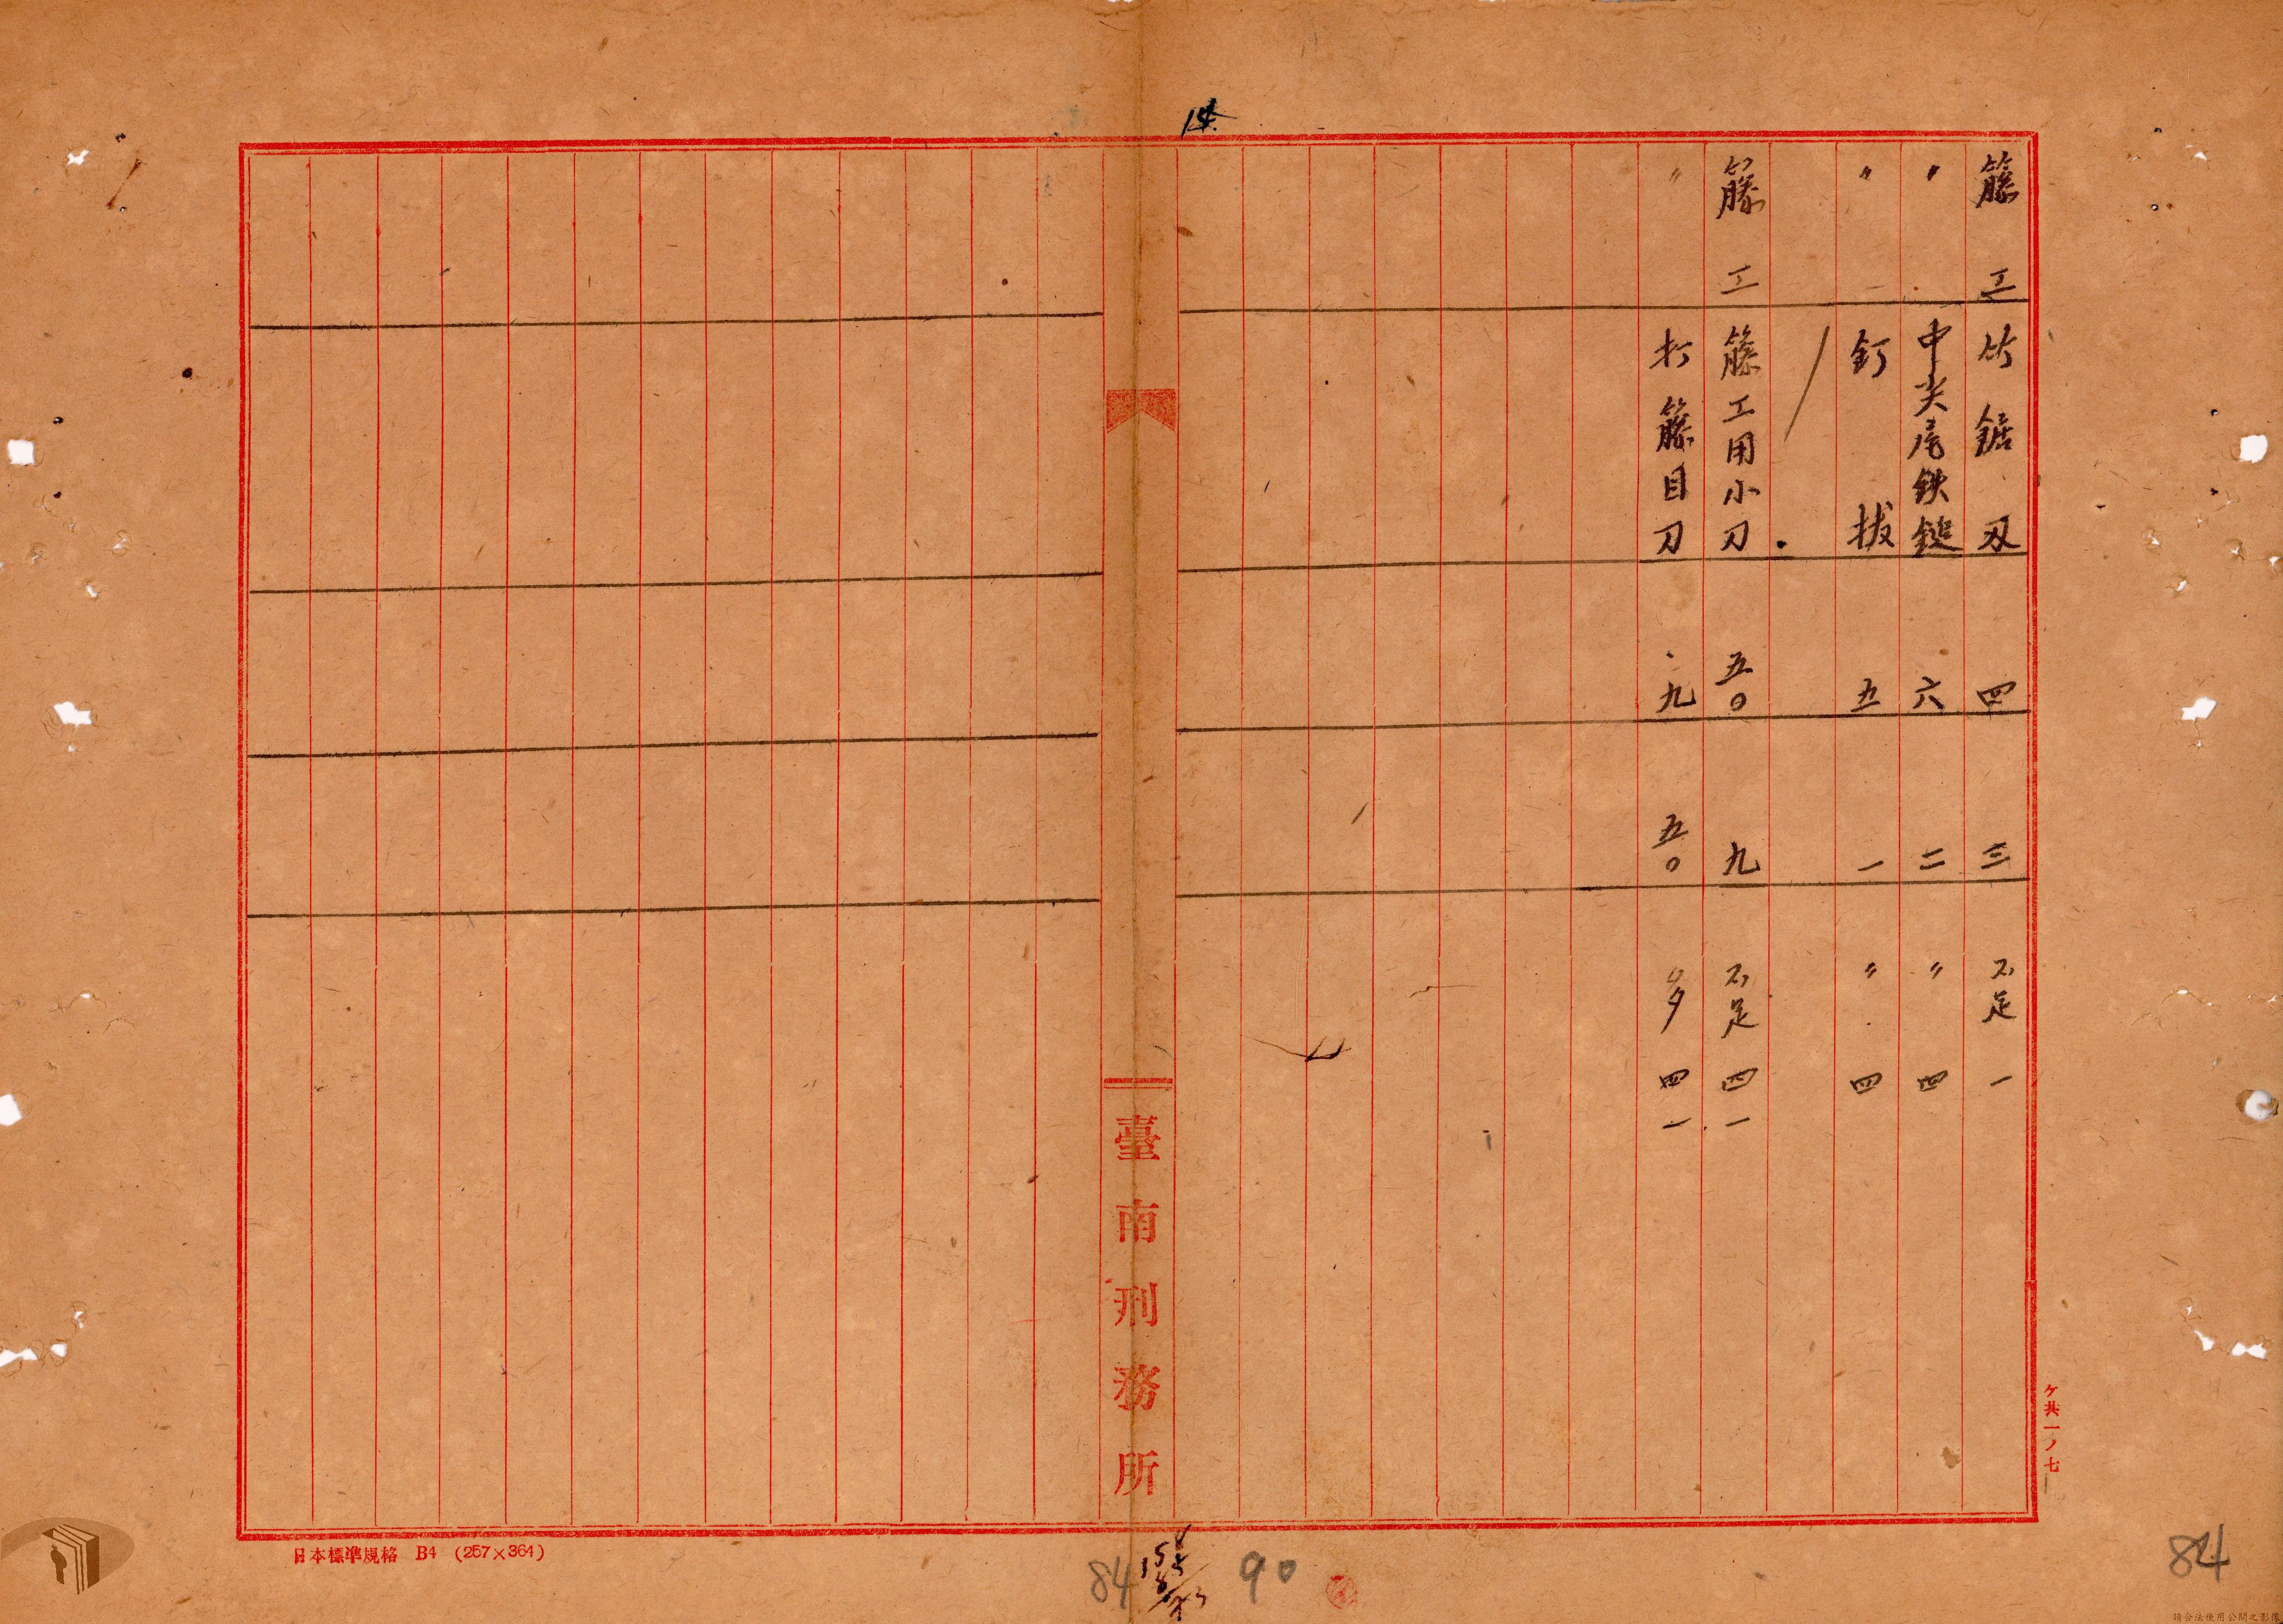 籐工 竹鋸刃 四 三 不足一
〃 中尖尾鉄鎚 六 二 〃 四
〃 釘拔 五 一 〃 四
籐工 籐工用小刀 五〇 九 不足四一
〃 打籐目刀 九 五〇 多四一
臺南刑務所
ケ共一ノ七
日本標準規格 B4 (257×364)
84
90
84
請合法使用公開之影像